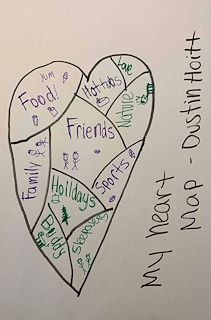 Yum
Food!
Hot tubs
Nature
Friends
Family
Sports
Holldays
Buddy
My heart
Map - Dustin Hoitt